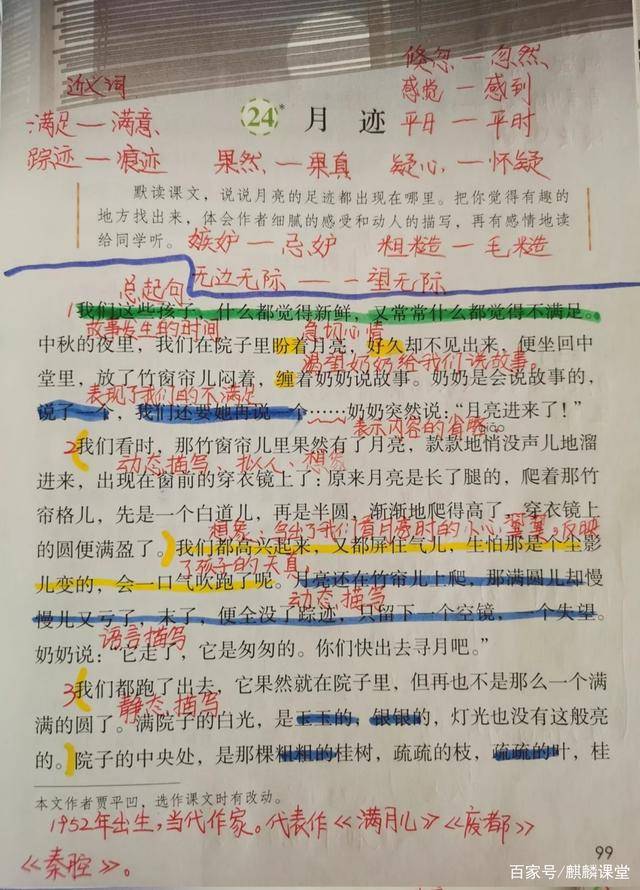 近义词
倏忽—忽然
感觉—感到
满足—满意
24* 月迹
平日—平时
踪迹—痕迹 果然—果真 疑心—怀疑
默读课文，说说月亮的足迹都出现在哪里。把你觉得有趣的
地方找出来，体会作者细腻的感受和动人的描写，再有感情地读
给同学听。
嫉妒—忌妒 粗糙—毛糙
无边无际——一望无际
总起句
1我们这些孩子，什么都觉得新鲜，又常常什么都觉得不满足。
故事发生的时间 急切心情
中秋的夜里，我们在院子里盼着月亮，好久却不见出来，便坐回中
渴望奶奶给我们说故事。
堂里，放了竹窗帘儿闷着，缠着奶奶说故事。奶奶是会说故事的，
表现了我们的不满足
说了一个，我们还要她再说一个……奶奶突然说：“月亮进来了！”
表示内容的省略。
qiāo
2我们看时，那竹窗帘儿里果然有了月亮，款款地悄没声儿地溜
动态描写、拟人、想象
进来，出现在窗前的穿衣镜上了：原来月亮是长了腿的，爬着那竹
帘格儿，先是一个白道儿，再是半圆，渐渐地爬得高了，穿衣镜上
想象：写出了我们看月亮时的小心翼翼。反映
的圆便满盈了。我们都高兴起来，又都屏住气儿，生怕那是个尘影
了孩子的天真。
儿变的，会一口气吹跑了呢。月亮还在竹帘儿上爬，那满圆儿却慢
动态描写
慢儿又亏了，末了，便全没了踪迹，只留下一个空镜，一个失望。
语言描写
奶奶说：“它走了，它是匆匆的。你们快出去寻月吧。”
3我们都跑了出去，它果然就在院子里，但再也不是那么一个满
静态描写
满的圆了。满院子的白光，是玉玉的，银银的，灯光也没有这般亮
的。院子的中央处，是那棵粗粗的桂树，疏疏的枝，疏疏的叶，桂
本文作者贾平凹，选作课文时有改动。
1952年出生，当代作家。代表作《满月儿》《废都》
《秦腔》。
99
百家号/麒麟课堂